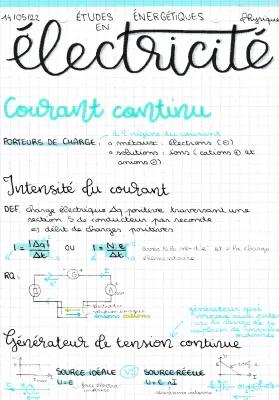 14/05/22 ÉTUDES ÉNERGÉTIQUES Physique
EN
électricité
Courant continu
à l'origine du courant
PORTEURS DE CHARGE : • métaux : électrons (⊖)
• solutions : ions (cations ⊕ et
anions ⊖)
Intensité du courant
DEF. charge électrique Δq positive traversant une
section S de conducteur par seconde
⇒ débit de charges positives
I = |Δq| / Δt OU I = N.e / Δt avec N le nb d'e- et e la charge
élémentaire
RQ :
anions cations
Générateur de tension continue
SOURCE IDÉALE VS SOURCE RÉELLE
U = E U = E - rI